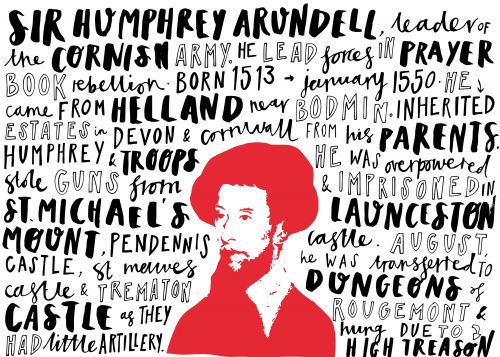 SIR HUMPHREY ARUNDELL, leader of
the CORNISH ARMY. HE LEAD forces in PRAYER
BOOK rebellion. BORN 1513 → january 1550. HE
came FROM HELLAND near BODMIN. INHERITED
ESTATES in DEVON & cornwall FROM his PARENTS.
HUMPHREY & TROOPS
stole GUNS from
ST. MICHAEL'S
MOUNT, PENDENNIS
CASTLE, st mawes
castle & TREMATON
CASTLE as THEY
HAD little ARTILLERY.
HE WAS overpowered
& IMPRISONED IN
LAUNCESTON
castle. AUGUST,
he was transferred TO
DUNGEONS of
ROUGEMONT &
hung DUE TO
HIGH TREASON